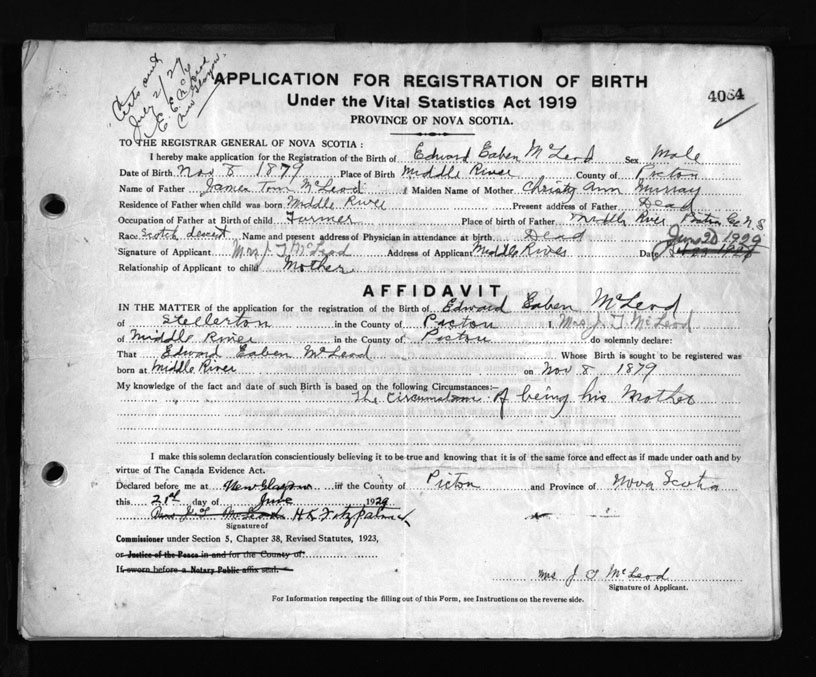 July 2/29
New Glasgow
APPLICATION FOR REGISTRATION OF BIRTH
4064
Under the Vital Statistics Act 1919
PROVINCE OF NOVA SCOTIA.
TO THE REGISTRAR GENERAL OF NOVA SCOTIA:
I hereby make application for the Registration of the Birth of Edward Eaben McLeod Sex Male
Date of Birth Nov 8 1879 Place of Birth Middle River County of Picton
Name of Father James Tom McLeod Maiden Name of Mother Christy Ann Murray
Residence of Father when child was born Middle River Present address of Father Dead
Occupation of Father at Birth of child Farmer Place of birth of Father Middle River Picton Co N.S
Race Scotch descent Name and present address of Physician in attendance at birth Dead June 20 1929
Signature of Applicant Mrs J. T McLeod Address of Applicant Middle River Date
Relationship of Applicant to child Mother
AFFIDAVIT
IN THE MATTER of the application for the registration of the Birth of Edward Eaben McLeod
of Stellerton in the County of Picton I, Mrs J T McLeod
of Middle River in the County of Picton do solemnly declare:
That Edward Eaben McLeod Whose Birth is sought to be registered was
born at Middle River on Nov 8 1879
My knowledge of the fact and date of such Birth is based on the following Circumstances:—
The Circumstance of being his Mother
I make this solemn declaration conscientiously believing it to be true and knowing that it is of the same force and effect as if made under oath and by
virtue of The Canada Evidence Act.
Declared before me at New Glasgow in the County of Picton and Province of Nova Scotia
this 21st day of June 1929
Mrs J. T McLeod H K Fitzpatrick
Signature of
Commissioner under Section 5, Chapter 38, Revised Statutes, 1923,
or Justice of the Peace in and for the County of
If sworn before a Notary Public affix seal.
Mrs J T McLeod
Signature of Applicant.
For Information respecting the filling out of this Form, see Instructions on the reverse side.